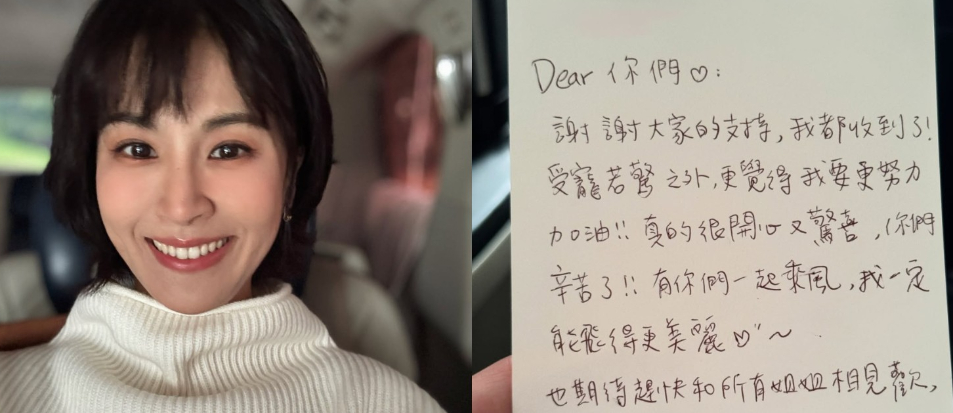 Dear 你們♡：
謝謝大家的支持，我都收到了！
受寵若驚之外，更覺得我要更努力
加油！！真的很開心又驚喜，你們
辛苦了！！有你們一起乘風，我一定
能飛得更美麗♡"～
也期待趕快和所有姐姐相見歡，